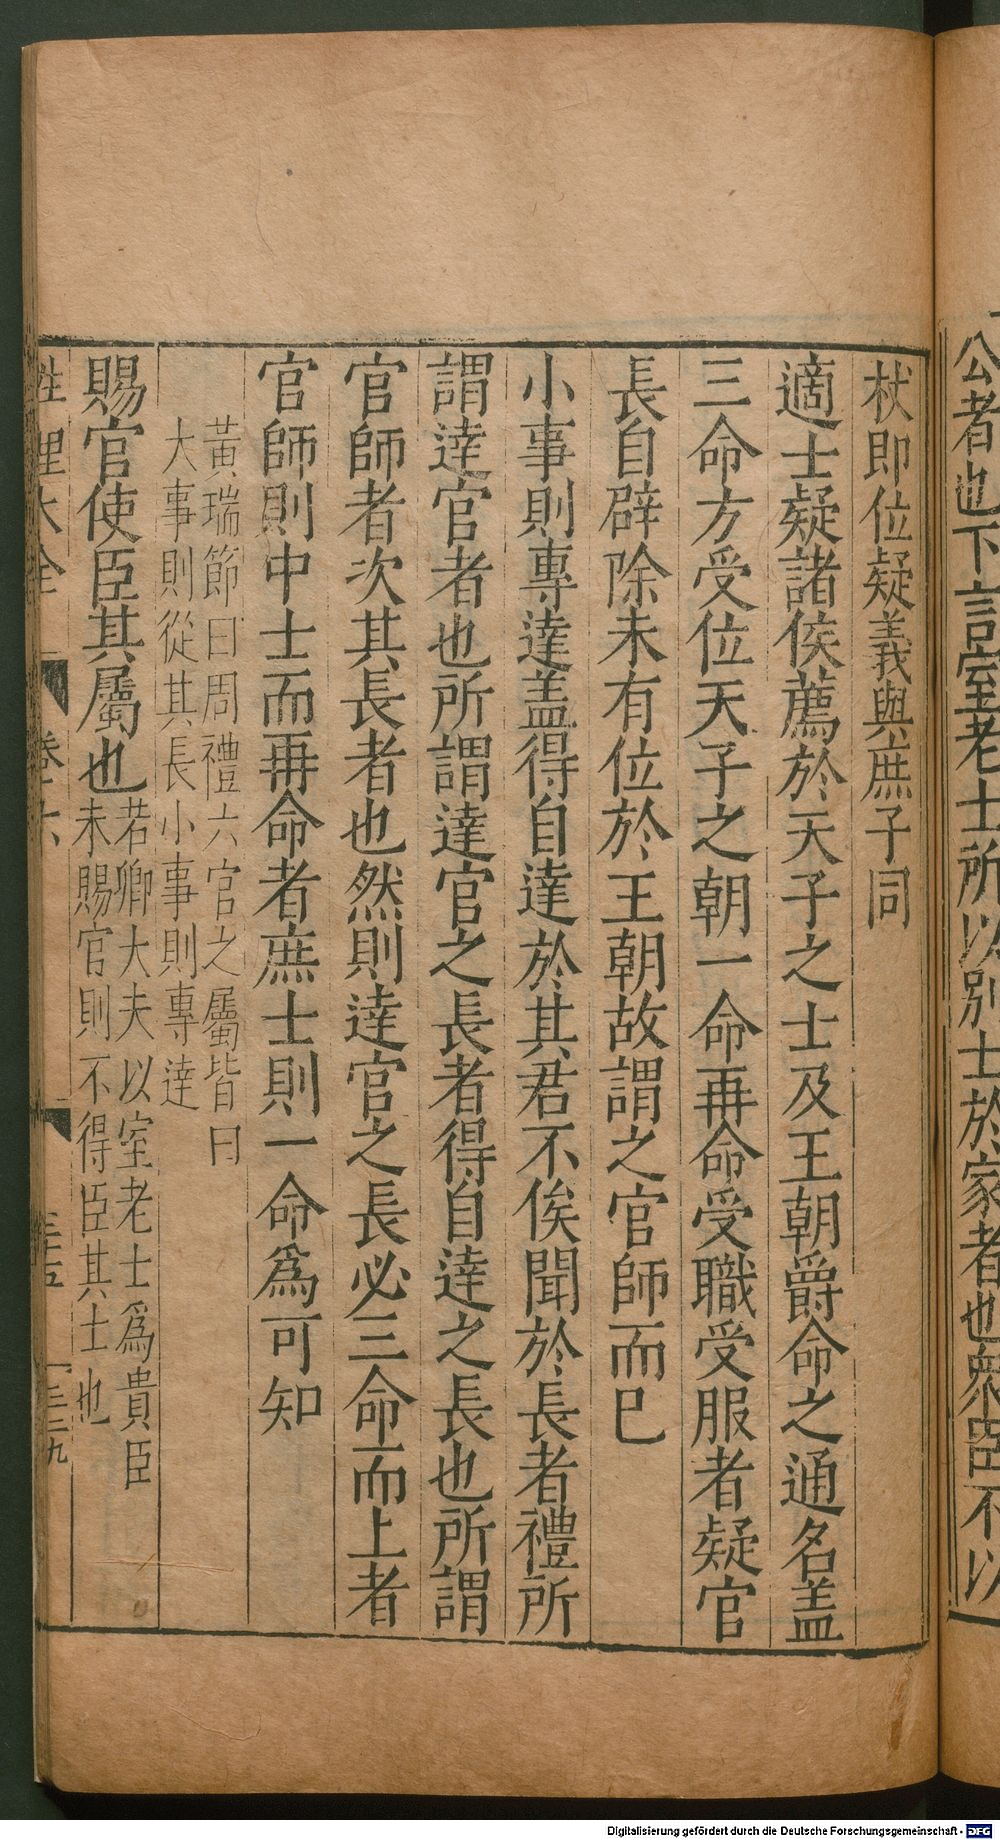 公者也下言室老士所以別士於家者也衆臣不以
杖即位疑義與庶子同
適士疑諸侯薦於天子之士及王朝爵命之通名盖
三命方受位天子之朝一命再命受職受服者疑官
長自辟除未有位於王朝故謂之官師而已
小事則專達盖得自達於其君不俟聞於長者禮所
謂達官者也所謂達官之長者得自達之長也所謂
官師者次其長者也然則達官之長必三命而上者
官師則中士而再命者庶士則一命爲可知
黃瑞節曰周禮六官之屬皆曰
大事則從其長小事則專達
賜官使臣其屬也若卿大夫以室老士爲貴臣
未賜官則不得臣其士也
性理大全 卷六 三十五 一三二九
Digitalisierung gefördert durch die Deutsche Forschungsgemeinschaft - DFG